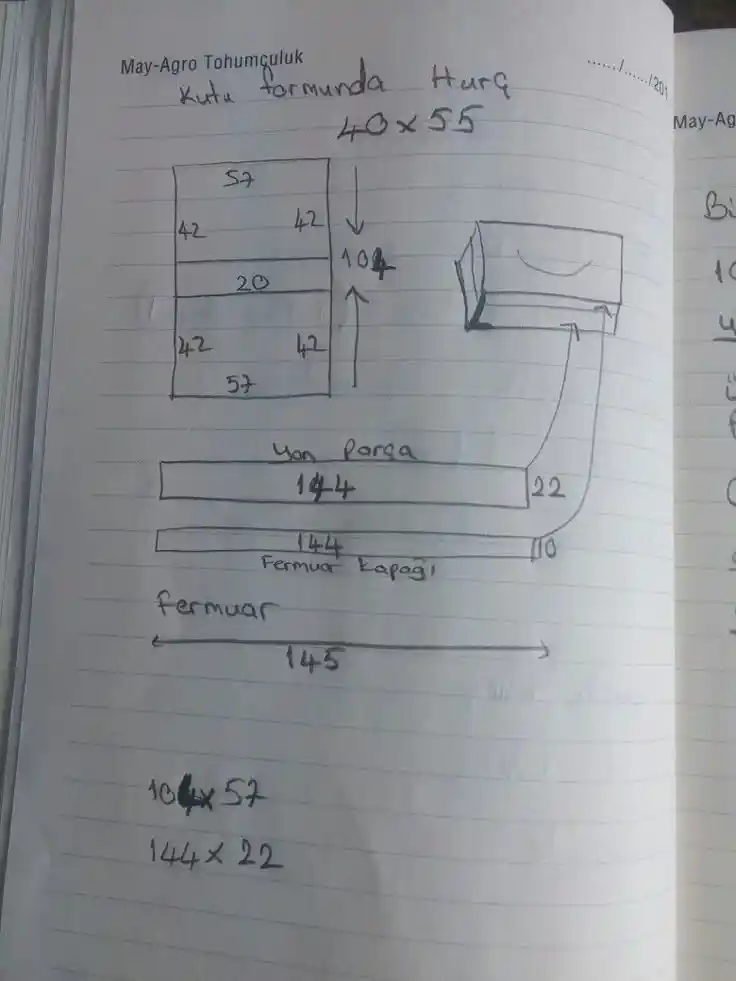 May-Agro Tohumculuk
....../....../201
Kutu formunda Hurç
40 x 55
57
42 42
104
20
42 42
57
Yan Parça
144
22
144
10
Fermuar kapağı
fermuar
145
104x 57
144 x 22
May-Ag
Bi